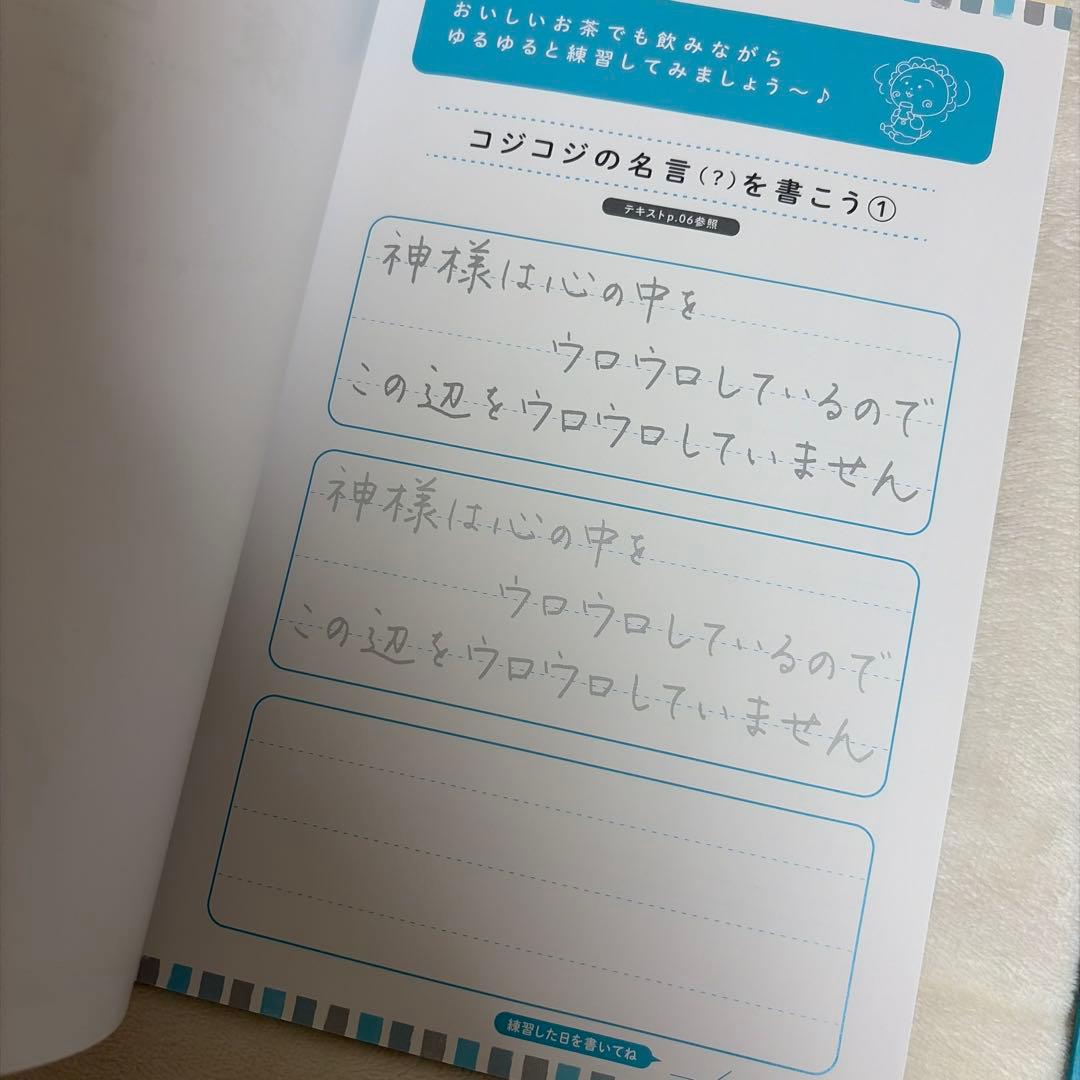 おいしいお茶でも飲みながら
ゆるゆると練習してみましょう〜♪
コジコジの名言(?)を書こう①
テキストp.06参照
神様は心の中を
ウロウロしているので
この辺をウロウロしていません
神様は心の中を
ウロウロしているので
この辺をウロウロしていません
練習した日を書いてね